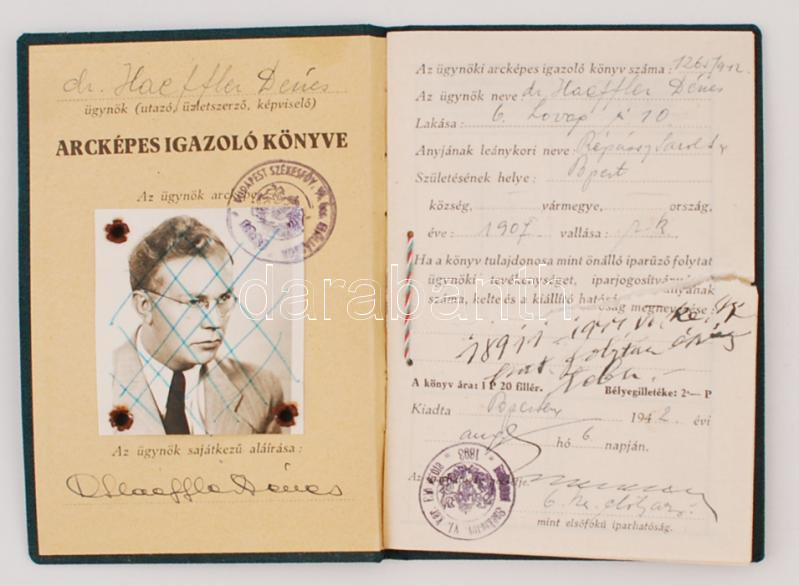 dr. Haeffler Dénes
ügynök (utazó, üzletszerző, képviselő)
ARCKÉPES IGAZOLÓ KÖNYVE
Az ügynök arcképe
BUDAPEST SZÉKESFŐV.
Az ügynök sajátkezű aláírása:
dr Haeffler Dénes
Az ügynöki arcképes igazoló könyv száma: 1265/942
Az ügynök neve: dr Haeffler Dénes
Lakása: 6. Lovag u 10
Anyjának leánykori neve: Répássy
Születésének helye: Bpest
község, vármegye, ország,
éve: 1907 vallása: r. k.
Ha a könyv tulajdonosa mint önálló iparűző folytat
ügynöki tevékenységet, iparjogosítványának
száma, kelte és a kiállító hatóság megnevezése:
A könyv ára: 1 P 20 fillér. Bélyegilletéke: 2·— P
Kiadta Bpesten 1942. évi
aug. hó 6 napján.
1893
6. ker. elöljáró
mint elsőfokú iparhatóság.
darabanth